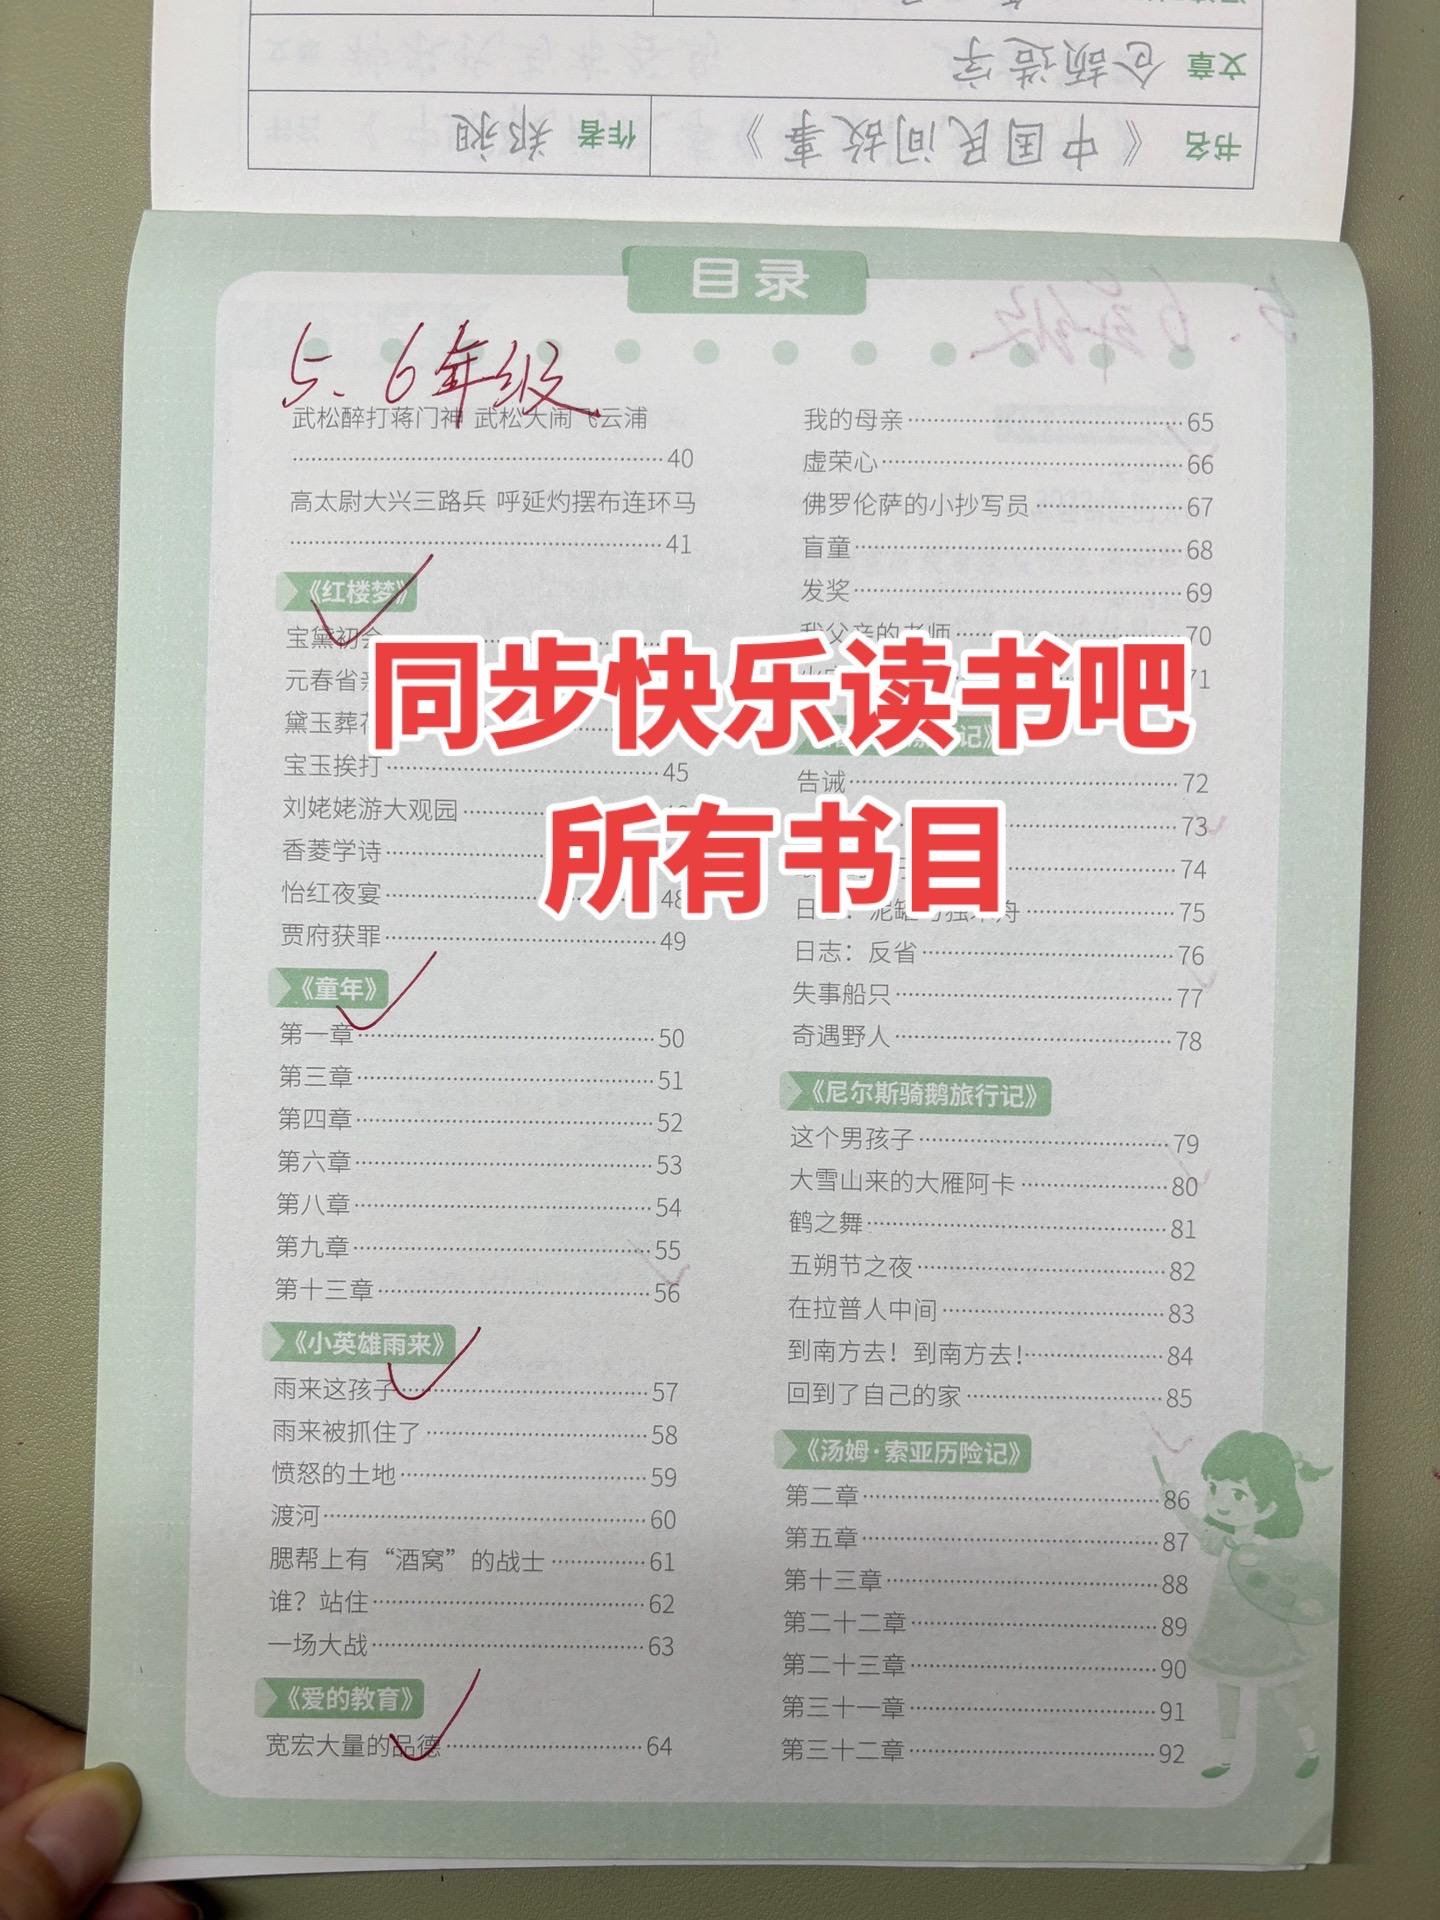 文章 仓颉造字
书名 《中国民间故事》 作者 郑昶
目录
5、6年级
武松醉打蒋门神 武松大闹飞云浦
40
高太尉大兴三路兵 呼延灼摆布连环马
41
《红楼梦》
宝黛初会
元春省亲
黛玉葬花
宝玉挨打 45
刘姥姥游大观园
香菱学诗
怡红夜宴 48
贾府获罪 49
《童年》
第一章 50
第三章 51
第四章 52
第六章 53
第八章 54
第九章 55
第十三章 56
《小英雄雨来》
雨来这孩子 57
雨来被抓住了 58
愤怒的土地 59
渡河 60
腮帮上有“酒窝”的战士 61
谁？站住 62
一场大战 63
《爱的教育》
宽宏大量的品德 64
我的母亲 65
虚荣心 66
佛罗伦萨的小抄写员 67
盲童 68
发奖 69
我父亲的老师 70
71
记》
告诫 72
73
74
日志：泥罐与独木舟 75
日志：反省 76
失事船只 77
奇遇野人 78
《尼尔斯骑鹅旅行记》
这个男孩子 79
大雪山来的大雁阿卡 80
鹤之舞 81
五朔节之夜 82
在拉普人中间 83
到南方去！到南方去！ 84
回到了自己的家 85
《汤姆·索亚历险记》
第二章 86
第五章 87
第十三章 88
第二十二章 89
第二十三章 90
第三十一章 91
第三十二章 92
同步快乐读书吧
所有书目